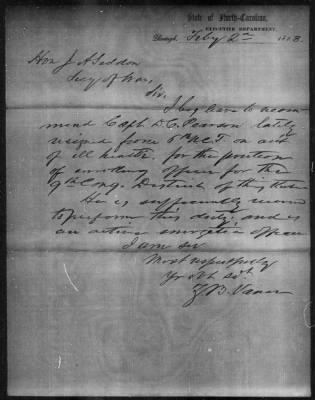 State of North-Carolina,
EXECUTIVE DEPARTMENT,
Raleigh, Feby 2nd 1863.
Hon J. A Seddon
Secy of War,
Sir,
I beg leave to recom
mend Capt. D. C. Pearson lately
resigned from 6th N.C.T. on acct
of ill health, for the position
of enrolling officer for the
9th Cong. District of this State
He is sufficiently
to perform this duty, and is
an active energetic officer
I am sir
Most respectfully
Yr obt svt
Z. B. Vance